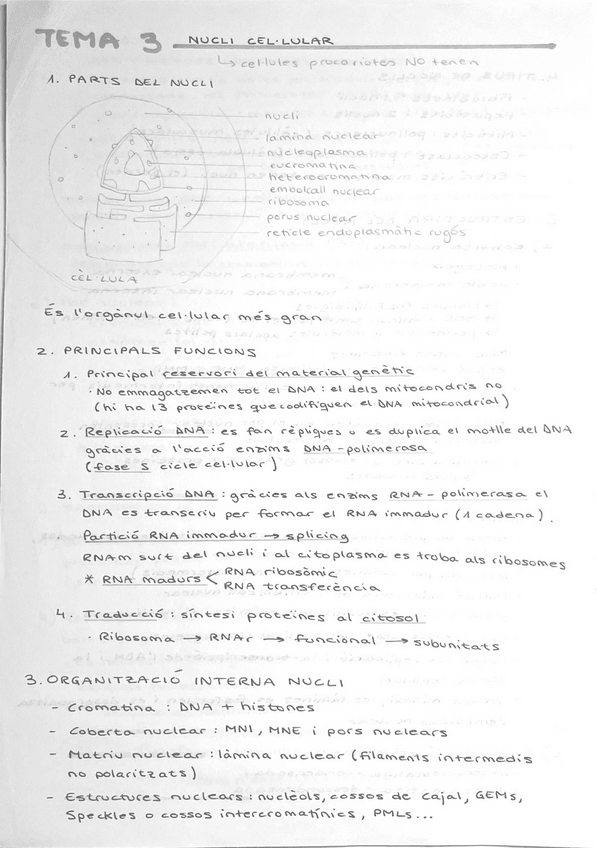 TEMA 3 NUCLI CEL·LULAR
↳ cèl·lules procariotes NO tenen
1. PARTS DEL NUCLI
nucli
làmina nuclear
nucleoplasma
eucromatina
heterocromatina
embolcall nuclear
ribosoma
porus nuclear
reticle endoplasmàtic rugós
CÈL·LULA
És l'orgànul cel·lular més gran
2. PRINCIPALS FUNCIONS
1. Principal reservori del material genètic
· No emmagatzemen tot el DNA : el dels mitocondris no
(hi ha 13 proteïnes que codifiquen el DNA mitocondrial)
2. Replicació DNA : es fan rèpliques o es duplica el motlle del DNA
gràcies a l'acció enzims DNA-polimerasa
(fase S cicle cel·lular)
3. Transcripció DNA : gràcies als enzims RNA-polimerasa el
DNA es transcriu per formar el RNA immadur (1 cadena).
· Partició RNA immadur → splicing
RNAm surt del nucli i al citoplasma es troba als ribosomes
* RNA madurs < RNA ribosòmic
RNA transferència
4. Traducció : síntesi proteïnes al citosol
· Ribosoma → RNAr → funcional → subunitats
3. ORGANITZACIÓ INTERNA NUCLI
- Cromatina : DNA + histones
- Coberta nuclear : MNI, MNE i pors nuclears
- Matriu nuclear : làmina nuclear (filaments intermedis
no polaritzats)
- Estructures nuclears : nuclèols, cossos de Cajal, GEMs,
Speckles o cossos intercromatínics, PMLs...